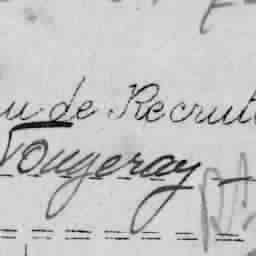 u de Recrut
Fougeray